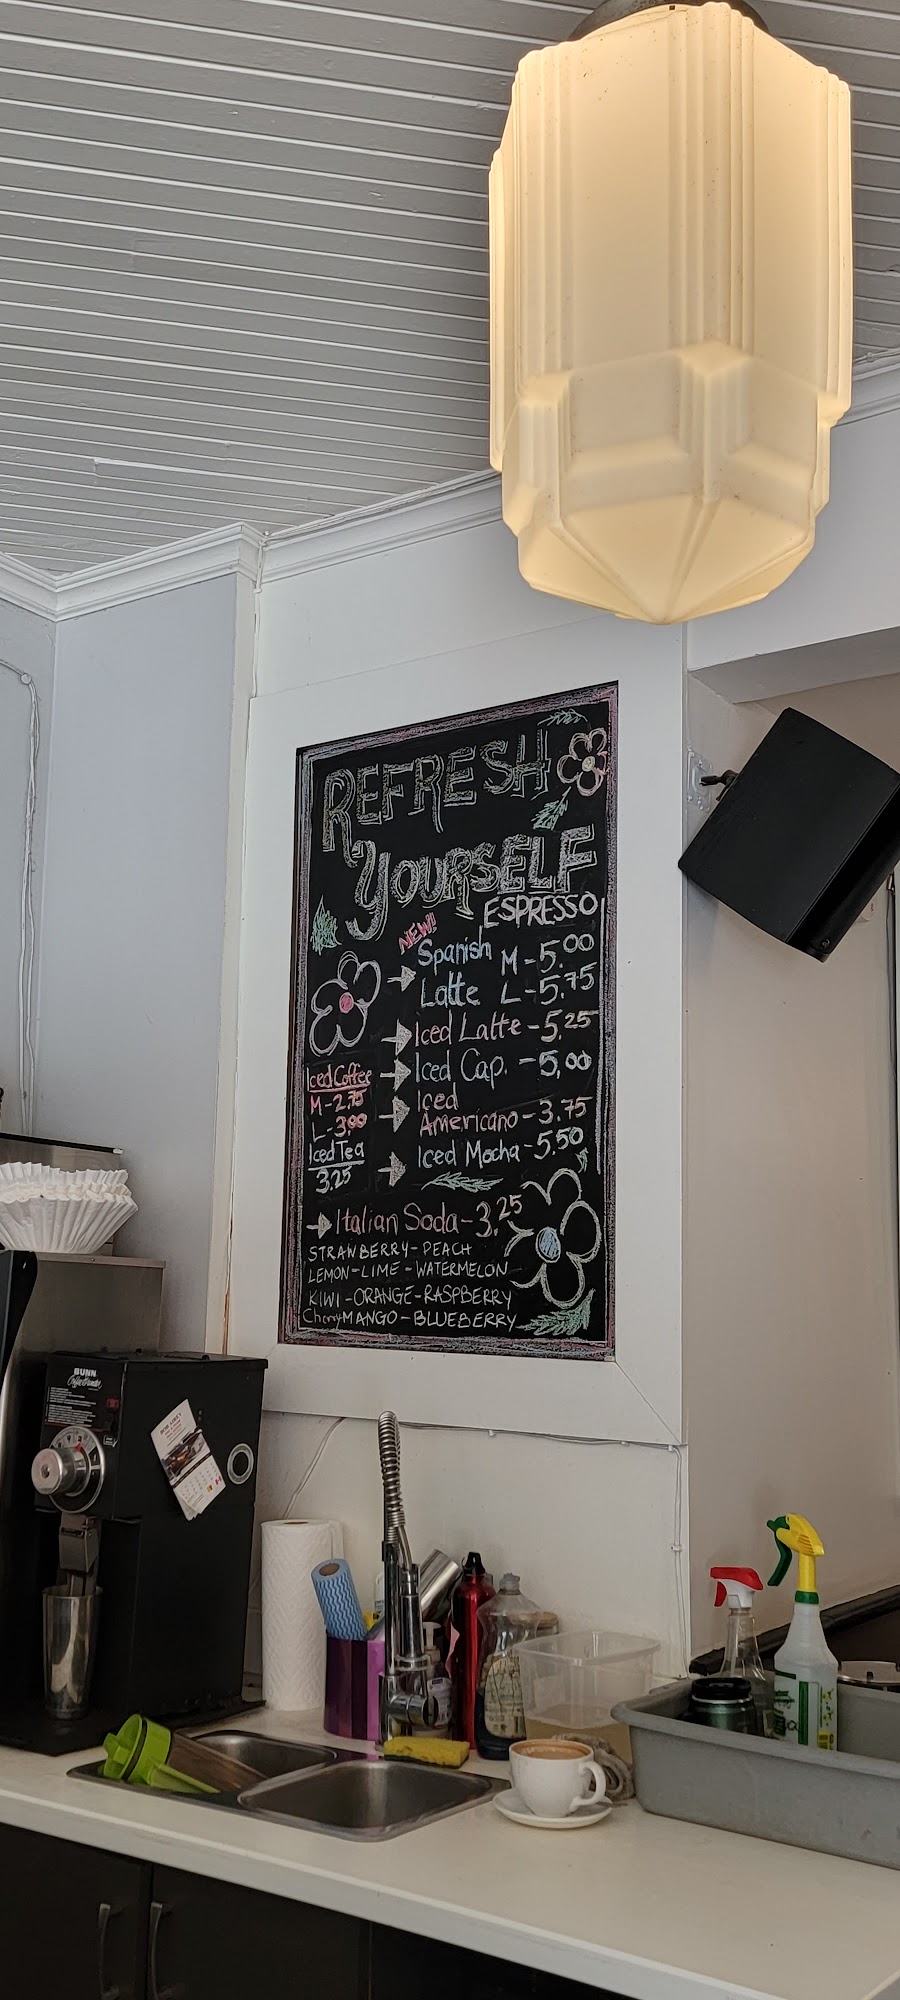 REFRESH
YOURSELF
ESPRESSO
NEW!
Spanish M-5.00
Latte L-5.75
Iced Latte-5.25
Iced Cap. -5,00
Iced
Americano-3.75
Iced Mocha-5.50
Iced Coffee
M-2.75
L-3.00
Iced Tea
3.25
Italian Soda-3.25
STRAWBERRY-PEACH
LEMON-LIME-WATERMELON
KIWI-ORANGE-RASPBERRY
Cherry MANGO-BLUEBERRY
BUNN